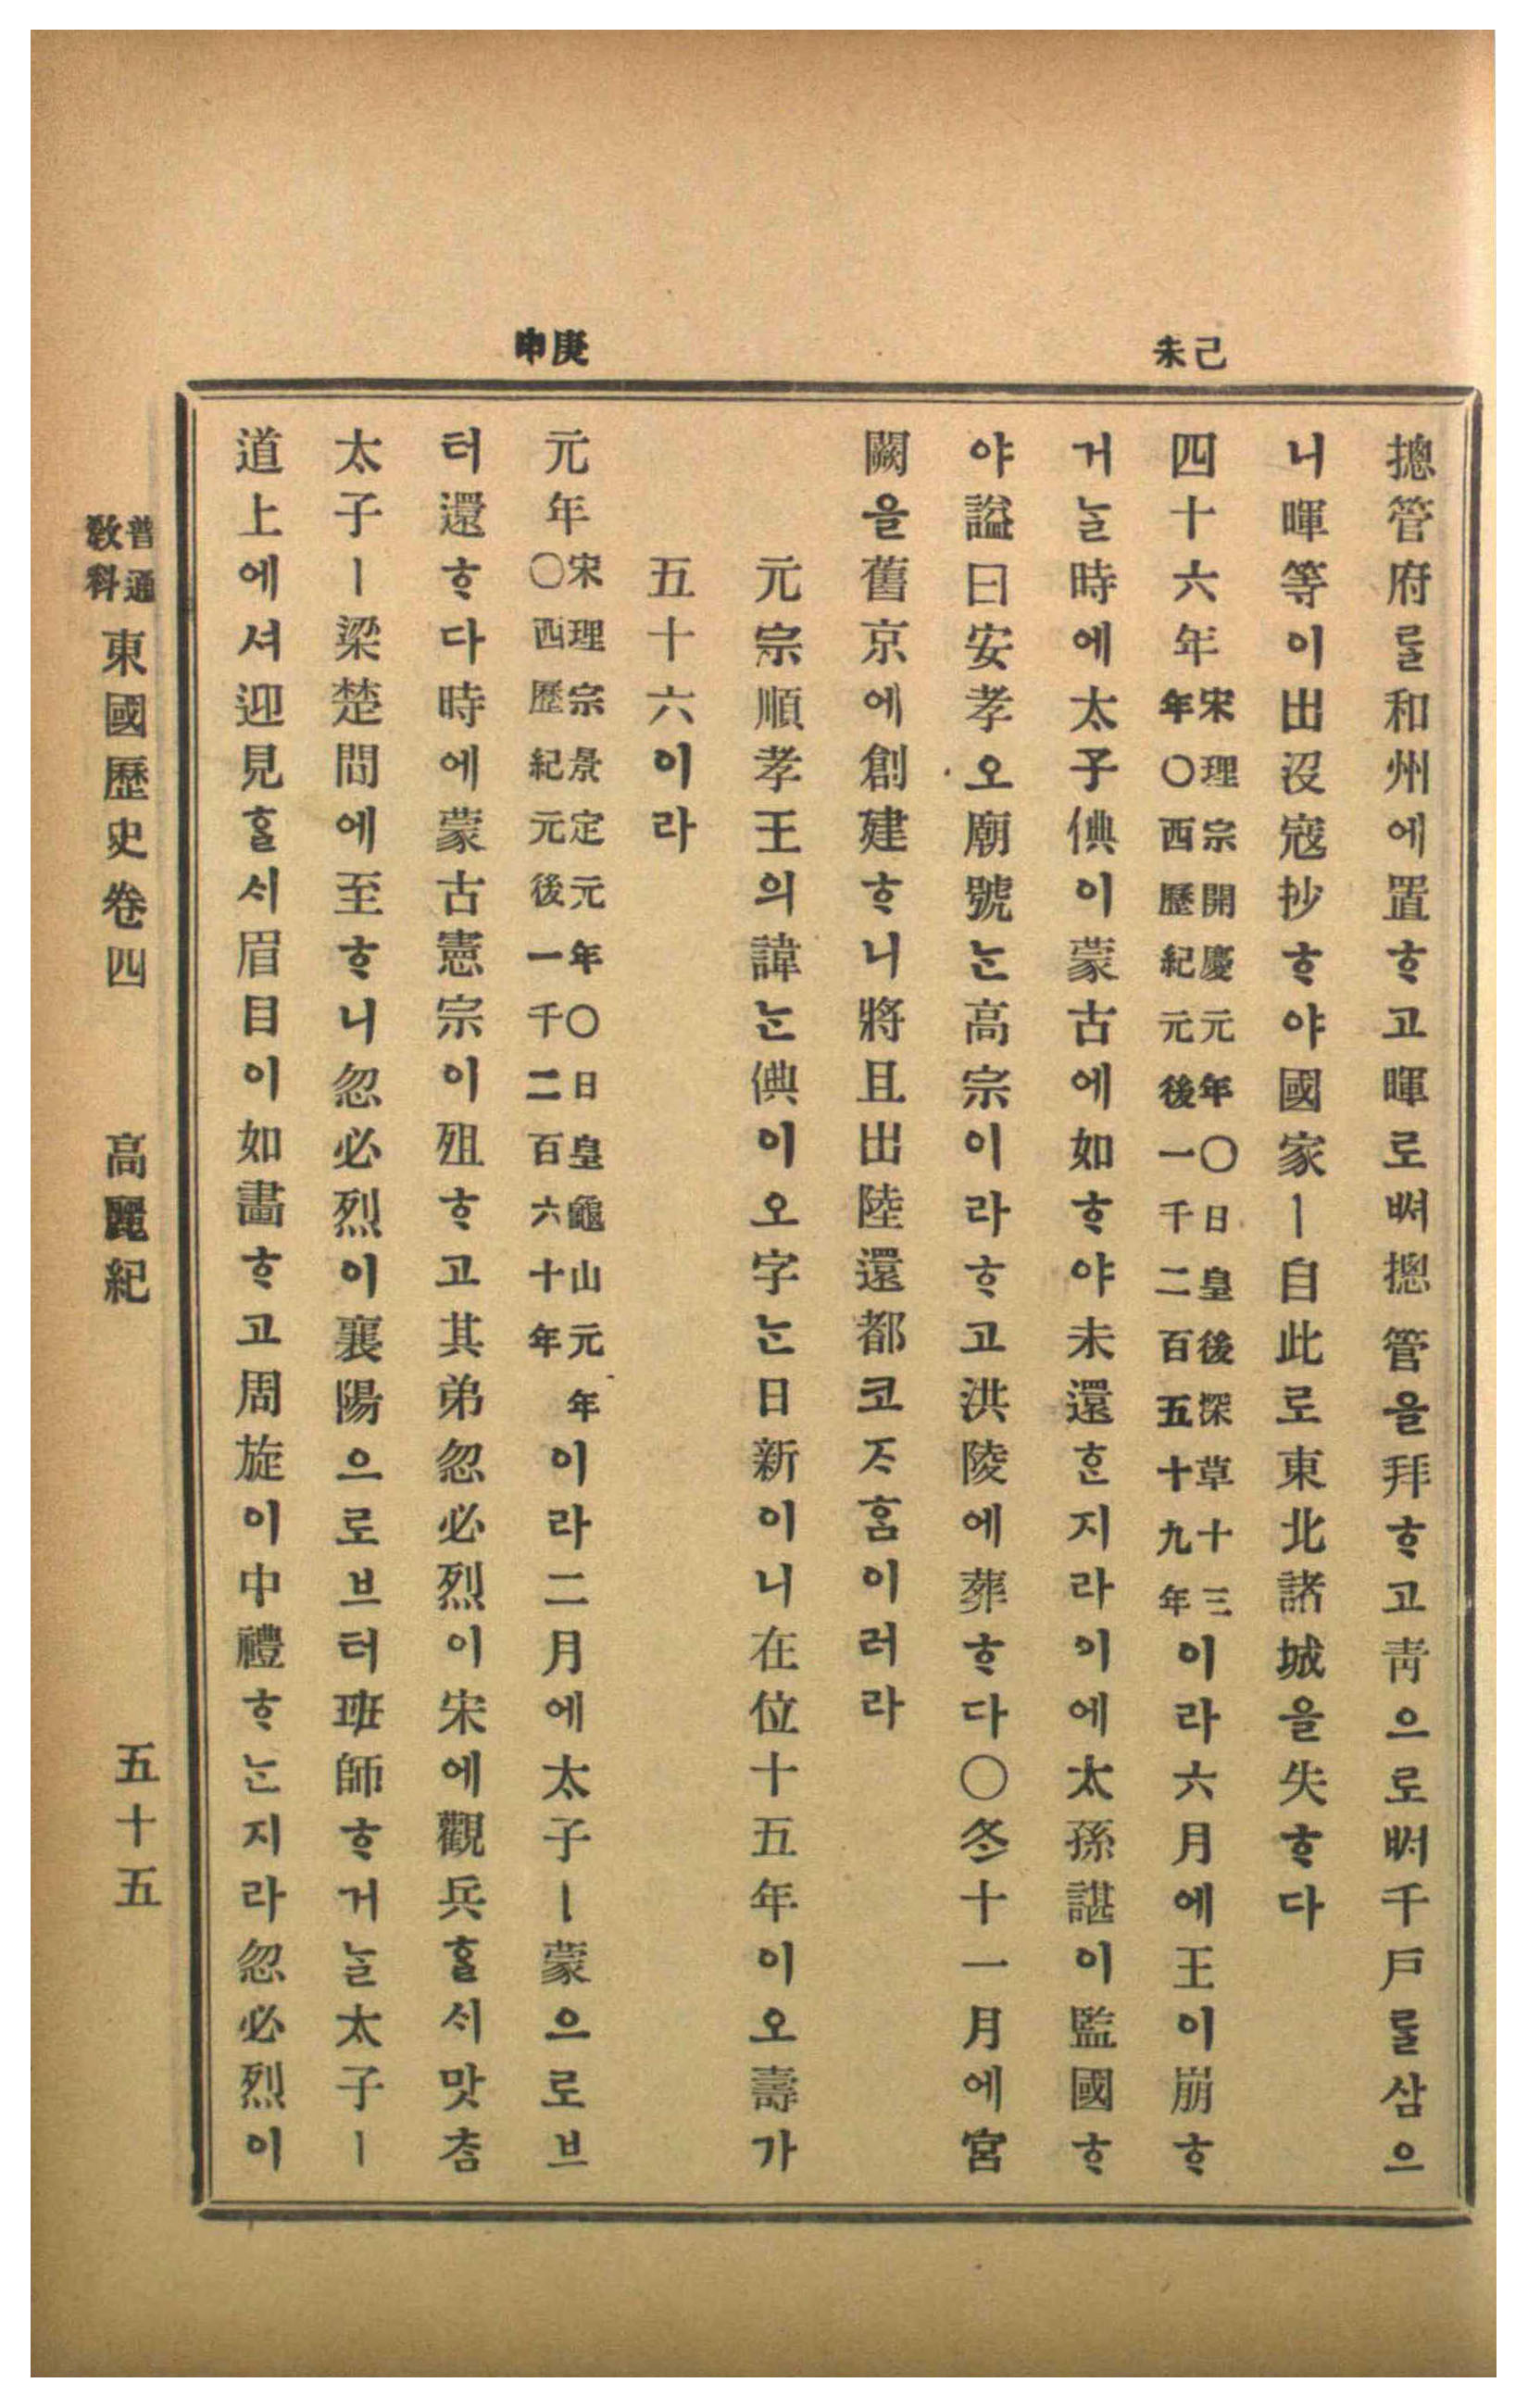 己未
庚申
摠管府를和州에置ᄒᆞ고暉로ᄡᅥ摠管을拜ᄒᆞ고靑으로ᄡᅥ千戶를삼으
니暉等이出沒寇抄ᄒᆞ야國家ㅣ自此로東北諸城을失ᄒᆞ다
四十六年宋理宗開慶元年○日皇後深草十三年○西歷紀元後一千二百五十九年이라六月에王이崩ᄒᆞ
거ᄂᆞᆯ時에太子倎이蒙古에如ᄒᆞ야未還ᄒᆞᆫ지라이에太孫諶이監國ᄒᆞ
야諡曰安孝오廟號ᄂᆞᆫ高宗이라ᄒᆞ고洪陵에葬ᄒᆞ다○冬十一月에宮
闕을舊京에創建ᄒᆞ니將且出陸還都코ᄌᆞ홈이러라
元宗順孝王의諱ᄂᆞᆫ倎이오字ᄂᆞᆫ日新이니在位十五年이오壽가
五十六이라
元年宋理宗景定元年○日皇龜山元年○西歷紀元後一千二百六十年이라二月에太子ㅣ蒙으로브
터還ᄒᆞ다時에蒙古憲宗이殂ᄒᆞ고其弟忽必烈이宋에觀兵ᄒᆞᆯᄉᆡ맛ᄎᆞᆷ
太子ㅣ梁楚間에至ᄒᆞ니忽必烈이襄陽으로브터班師ᄒᆞ거ᄂᆞᆯ太子ㅣ
道上에셔迎見ᄒᆞᆯᄉᆡ眉目이如畵ᄒᆞ고周旋이中禮ᄒᆞᄂᆞᆫ지라忽必烈이
普通敎科東國歷史卷四 高麗紀 五十五